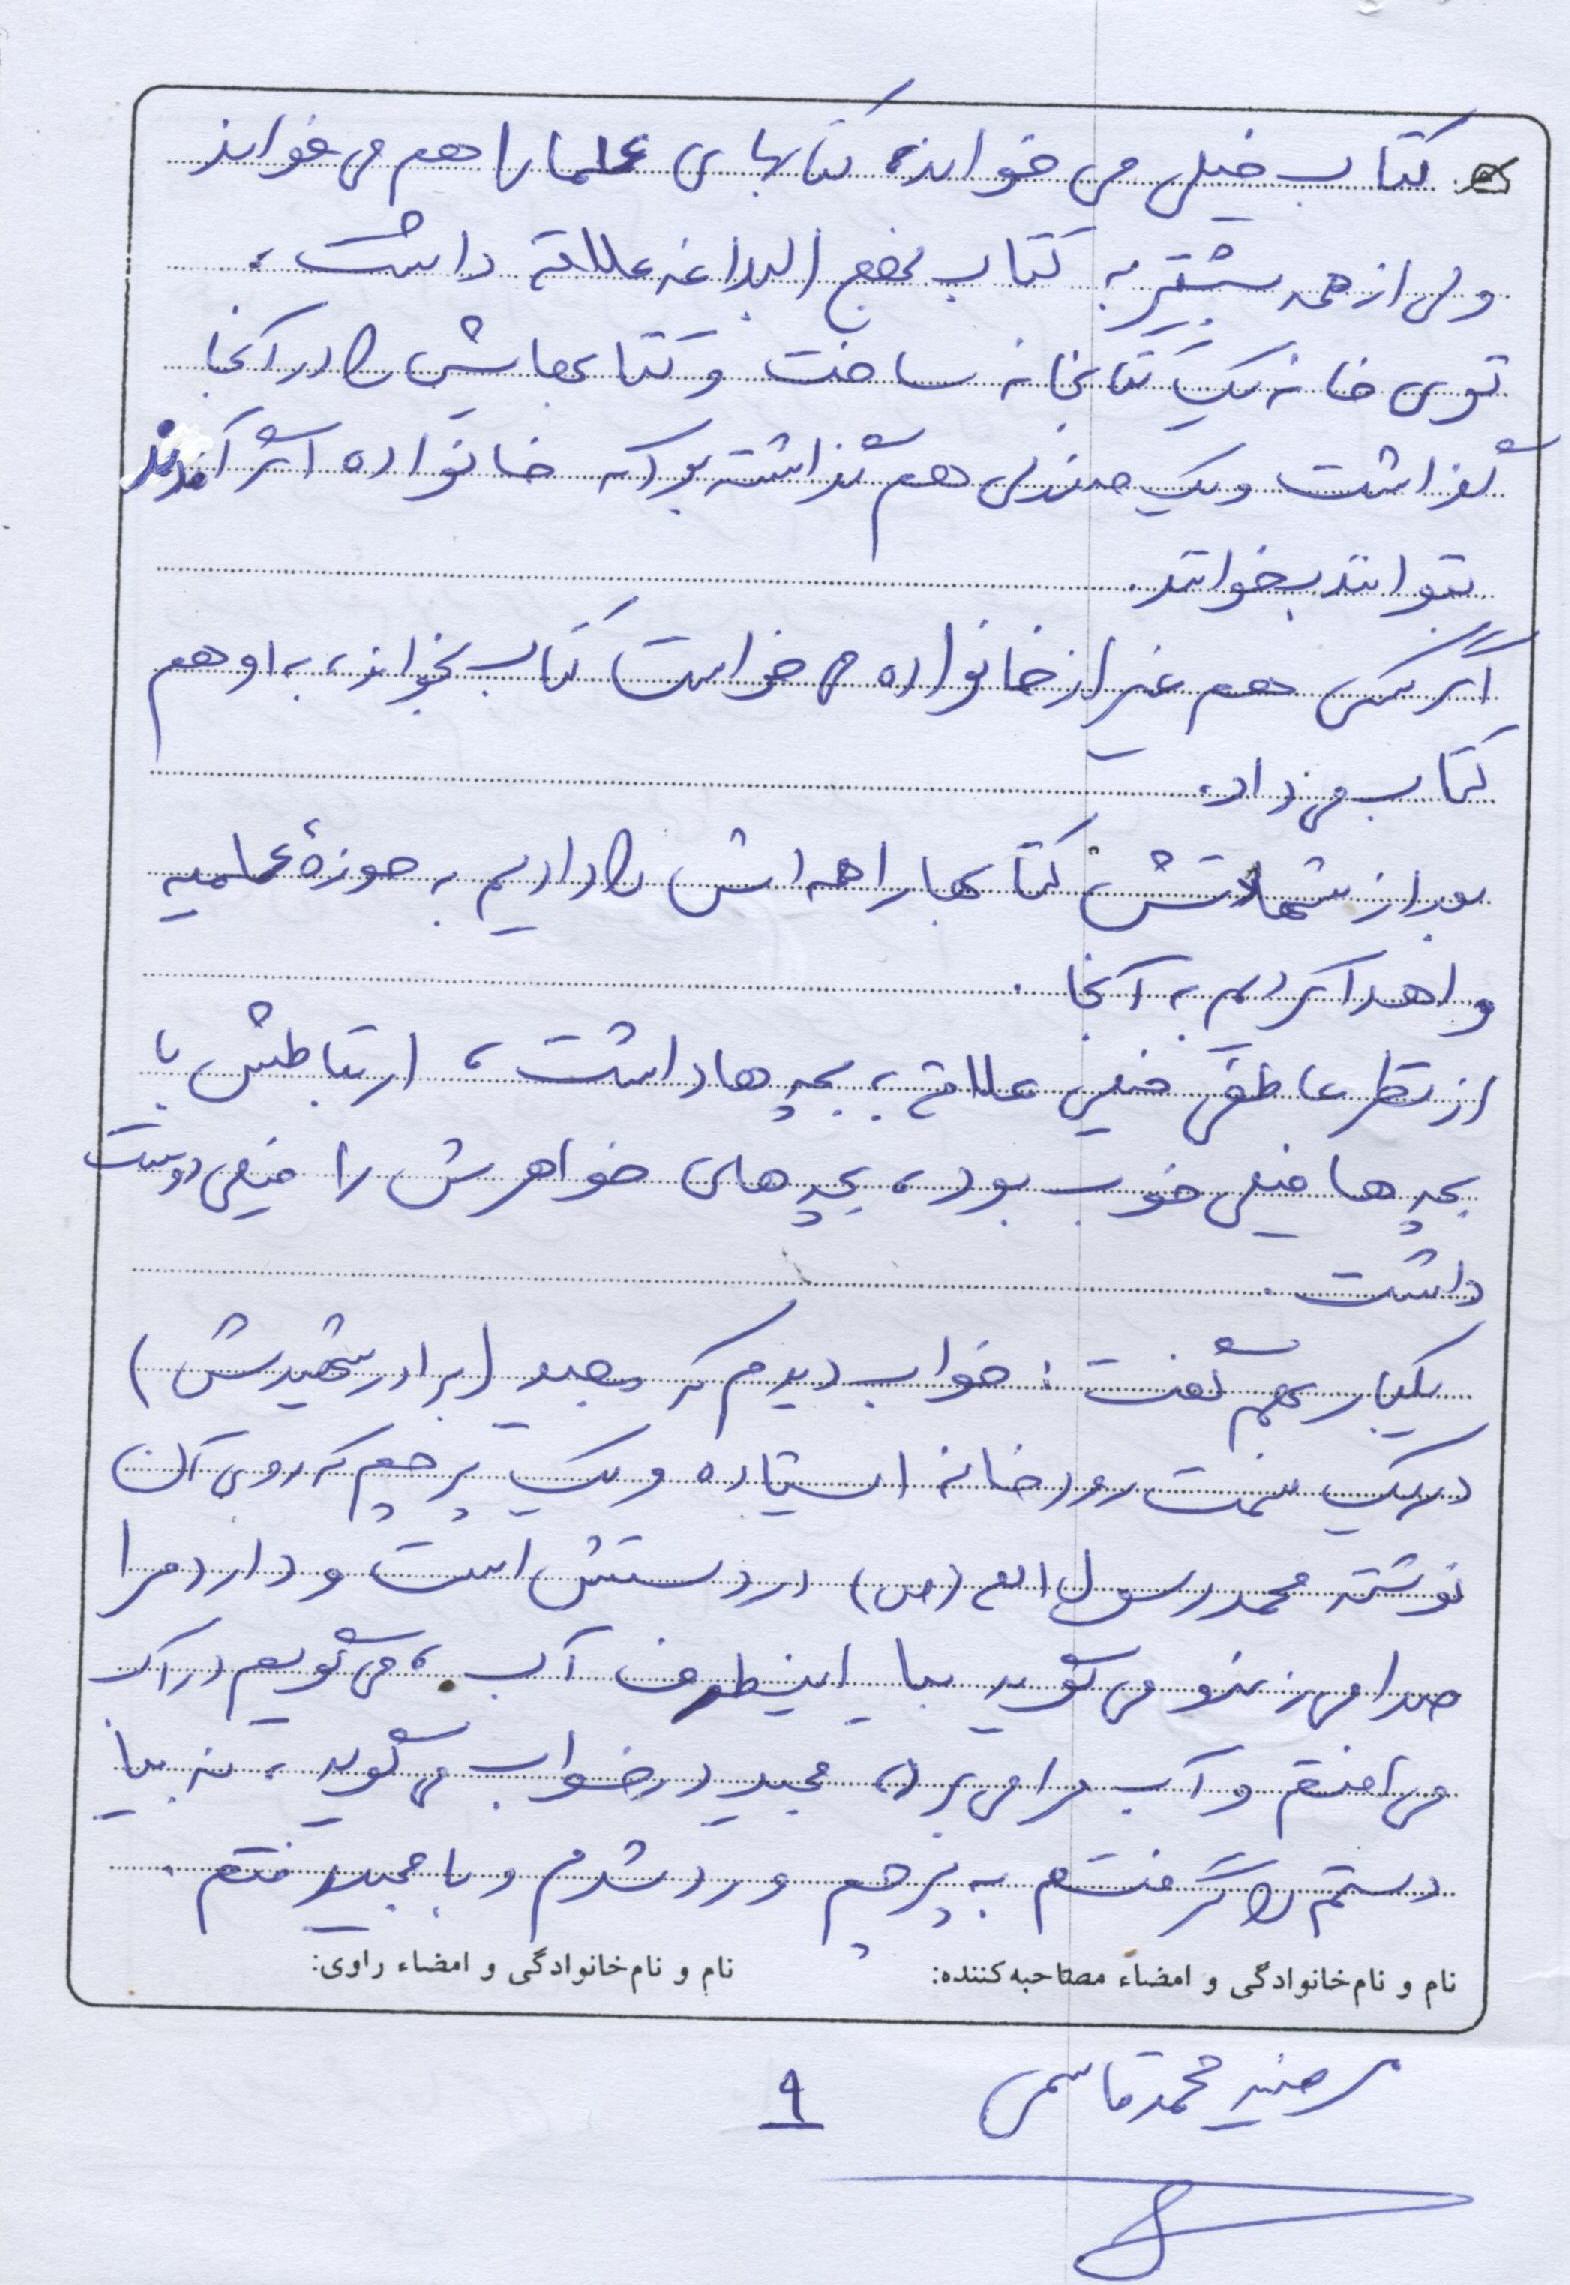 کتاب خیلی می خواند، کتابهای علما را هم می خواند
ولی از همه بیشتر به کتاب نهج البلاغه علاقه داشت،
توی خانه یک کتابخانه ساخت و کتابهایش را در آنجا
گذاشت و یک صندلی هم گذاشته بود که خانواده اگر آمدند
بتوانند بخوانند.
اگر کسی هم غیر از خانواده می خواست کتاب بخواند، به او هم
کتاب می داد.
بعد از شهادتش کتابها را همه اش را دادیم به حوزهٔ علمیه
و اهدا کردیم به آنجا.
از نظر عاطفی خیلی علاقه به بچه ها داشت، ارتباطش با
بچه ها خیلی خوب بود، بچه های خواهرش را خیلی دوست
داشت.
یکبار بهم گفت: خواب دیدم که مجید (برادر شهیدش)
در یک سمت رودخانه ایستاده و یک پرچم که روی آن
نوشته محمد رسول الله (ص) در دستش است و دارد مرا
صدا می زند و می گوید بیا اینطرف آب، می گویم در آب
می افتم و آب مرا می برد، مجید در خواب می گوید، نه بیا
دستم را گرفتم به پرچم و رد شدم و با مجید رفتم.
نام و نام خانوادگی و امضاء مصاحبه کننده: نام و نام خانوادگی و امضاء راوی:
مرضیه محمدقاسمی
۹